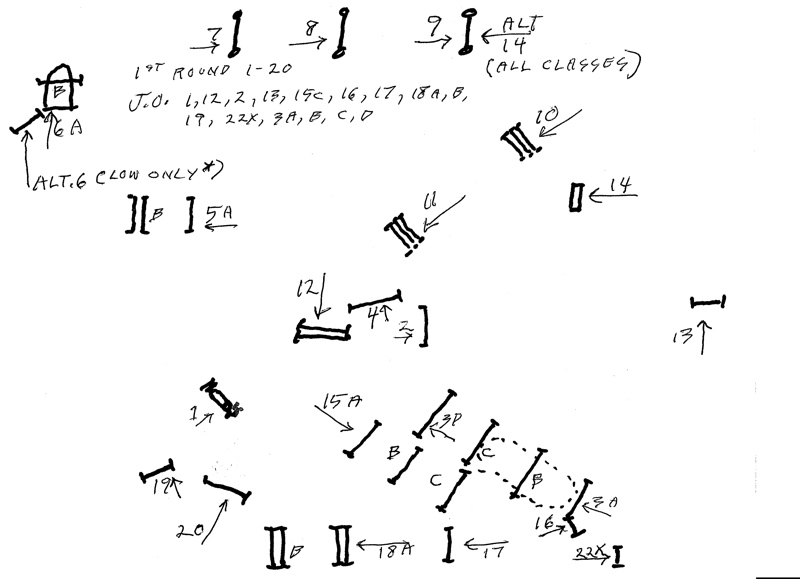 7
8
9
ALT
14
1ST ROUND 1-20
(ALL CLASSES)
J.O. 1,12,2,13,15C,16,17,18A,B,
19,22X,3A,B,C,D
B
6A
10
ALT.6 (LOW ONLY*)
14
11
B
5A
12
4
2
13
1
15A
3D
B
C
C
B
3A
19
20
16
B
18A
17
22X